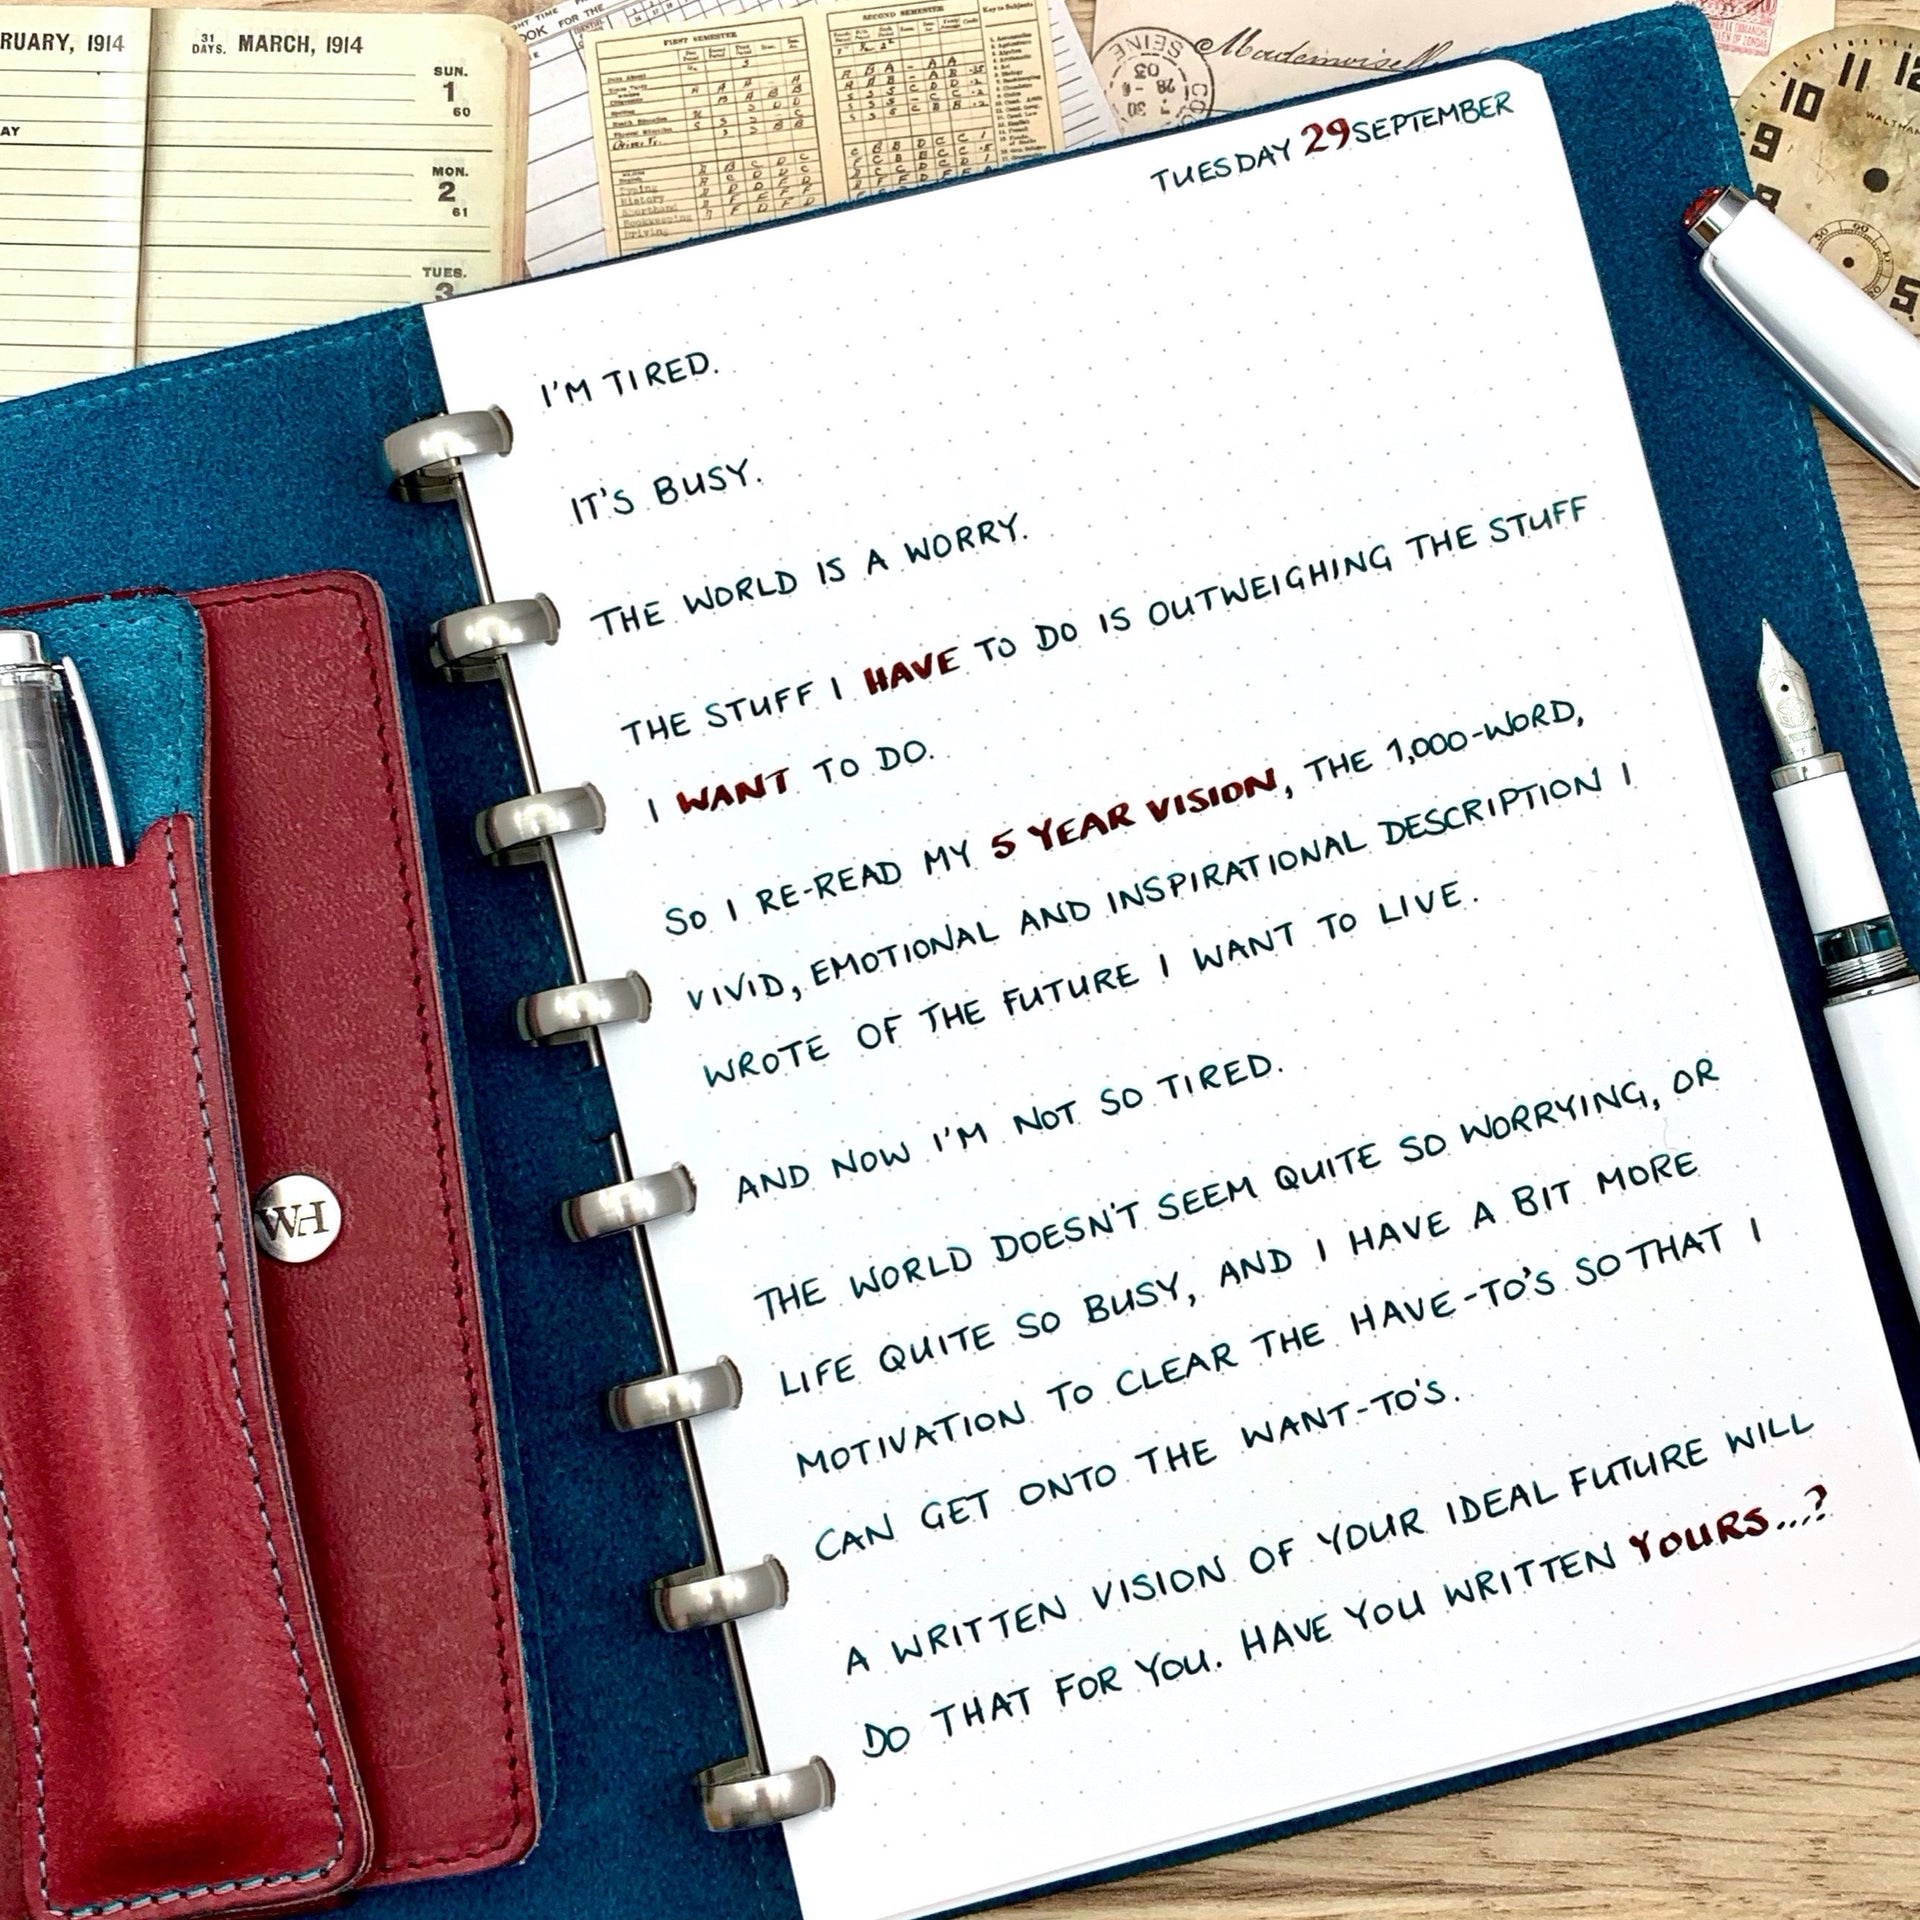 RUARY, 1914
31 DAYS. MARCH, 1914
SUN.
1
60
AY
MON.
2
61
TUES.
3
FIRST SEMESTER
SECOND SEMESTER
Key to Subjects
History
Shorthand
Bookkeeping
Driving
SEINE
Mademoiselle
10
11
12
9
8
5
WALTHAM
60
TUESDAY 29 SEPTEMBER
I'M TIRED.
IT'S BUSY.
THE WORLD IS A WORRY.
THE STUFF I HAVE TO DO IS OUTWEIGHING THE STUFF
I WANT TO DO.
SO I RE-READ MY 5 YEAR VISION, THE 1,000-WORD,
VIVID, EMOTIONAL AND INSPIRATIONAL DESCRIPTION I
WROTE OF THE FUTURE I WANT TO LIVE.
AND NOW I'M NOT SO TIRED.
THE WORLD DOESN'T SEEM QUITE SO WORRYING, OR
LIFE QUITE SO BUSY, AND I HAVE A BIT MORE
MOTIVATION TO CLEAR THE HAVE-TO'S SO THAT I
CAN GET ONTO THE WANT-TO'S.
A WRITTEN VISION OF YOUR IDEAL FUTURE WILL
DO THAT FOR YOU. HAVE YOU WRITTEN YOURS...?
WH